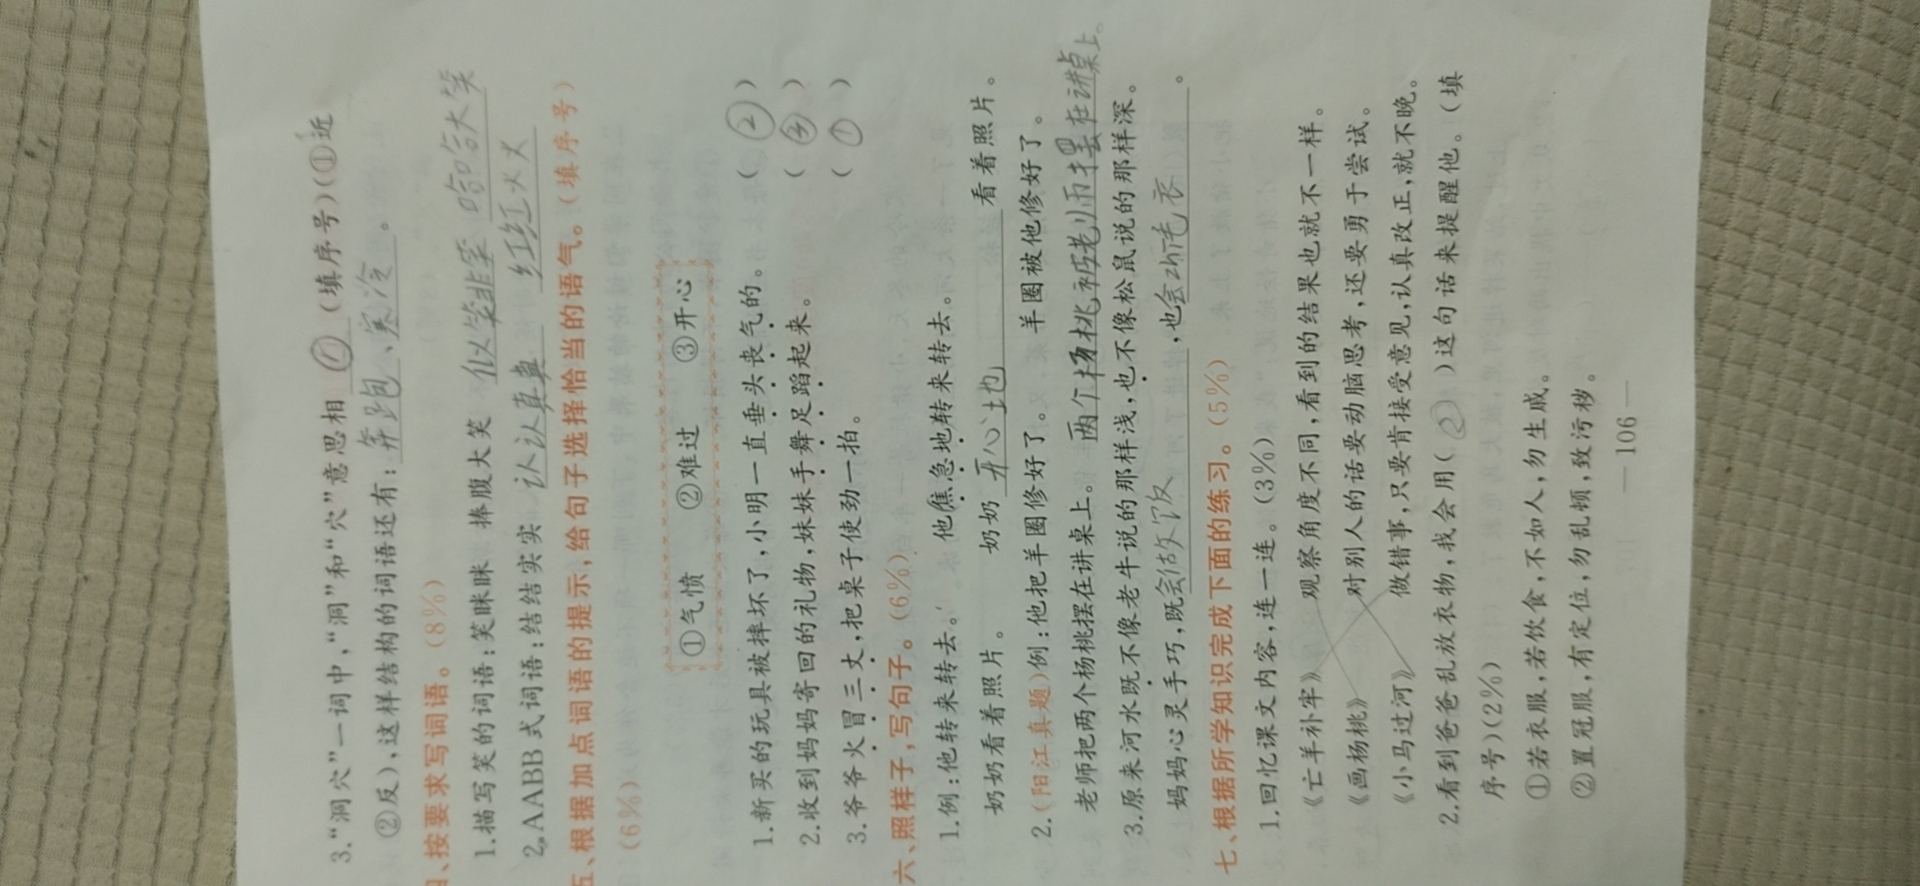 3.“洞穴”一词中，“洞”和“穴”意思相 ① （填序号）（①近
②反），这样结构的词语还有：奔跑、寒冷。
、按要求写词语。（8%）
1.描写笑的词语：笑眯眯 捧腹大笑 似笑非笑 哈哈大笑
2.AABB 式词语：结结实实 认认真真 红红火火
五、根据加点词语的提示，给句子选择恰当的语气。（填序号）
（6%）
①气愤 ②难过 ③开心
1.新买的玩具被摔坏了，小明一直垂头丧气的。 （ ② ）
2.收到妈妈寄回的礼物，妹妹手舞足蹈起来。 （ ③ ）
3.爷爷火冒三丈，把桌子使劲一拍。 （ ① ）
六、照样子，写句子。（6%）
1.例：他转来转去。 他焦急地转来转去。
奶奶看着照片。 奶奶 开心地 看着照片。
2.（阳江真题）例：他把羊圈修好了。 羊圈被他修好了。
老师把两个杨桃摆在讲桌上。 两个杨桃被老师摆在讲桌上。
3.原来河水既不像老牛说的那样浅，也不像松鼠说的那样深。
妈妈心灵手巧，既会做饭，也会织毛衣。
七、根据所学知识完成下面的练习。（5%）
1.回忆课文内容，连一连。（3%）
《亡羊补牢》 观察角度不同，看到的结果也就不一样。
《画杨桃》 对别人的话要动脑思考，还要勇于尝试。
《小马过河》 做错事，只要肯接受意见，认真改正，就不晚。
2.看到爸爸乱放衣物，我会用（ ② ）这句话来提醒他。（填
序号）（2%）
①若衣服，若饮食，不如人，勿生戚。
②置冠服，有定位，勿乱顿，致污秽。
— 106 —